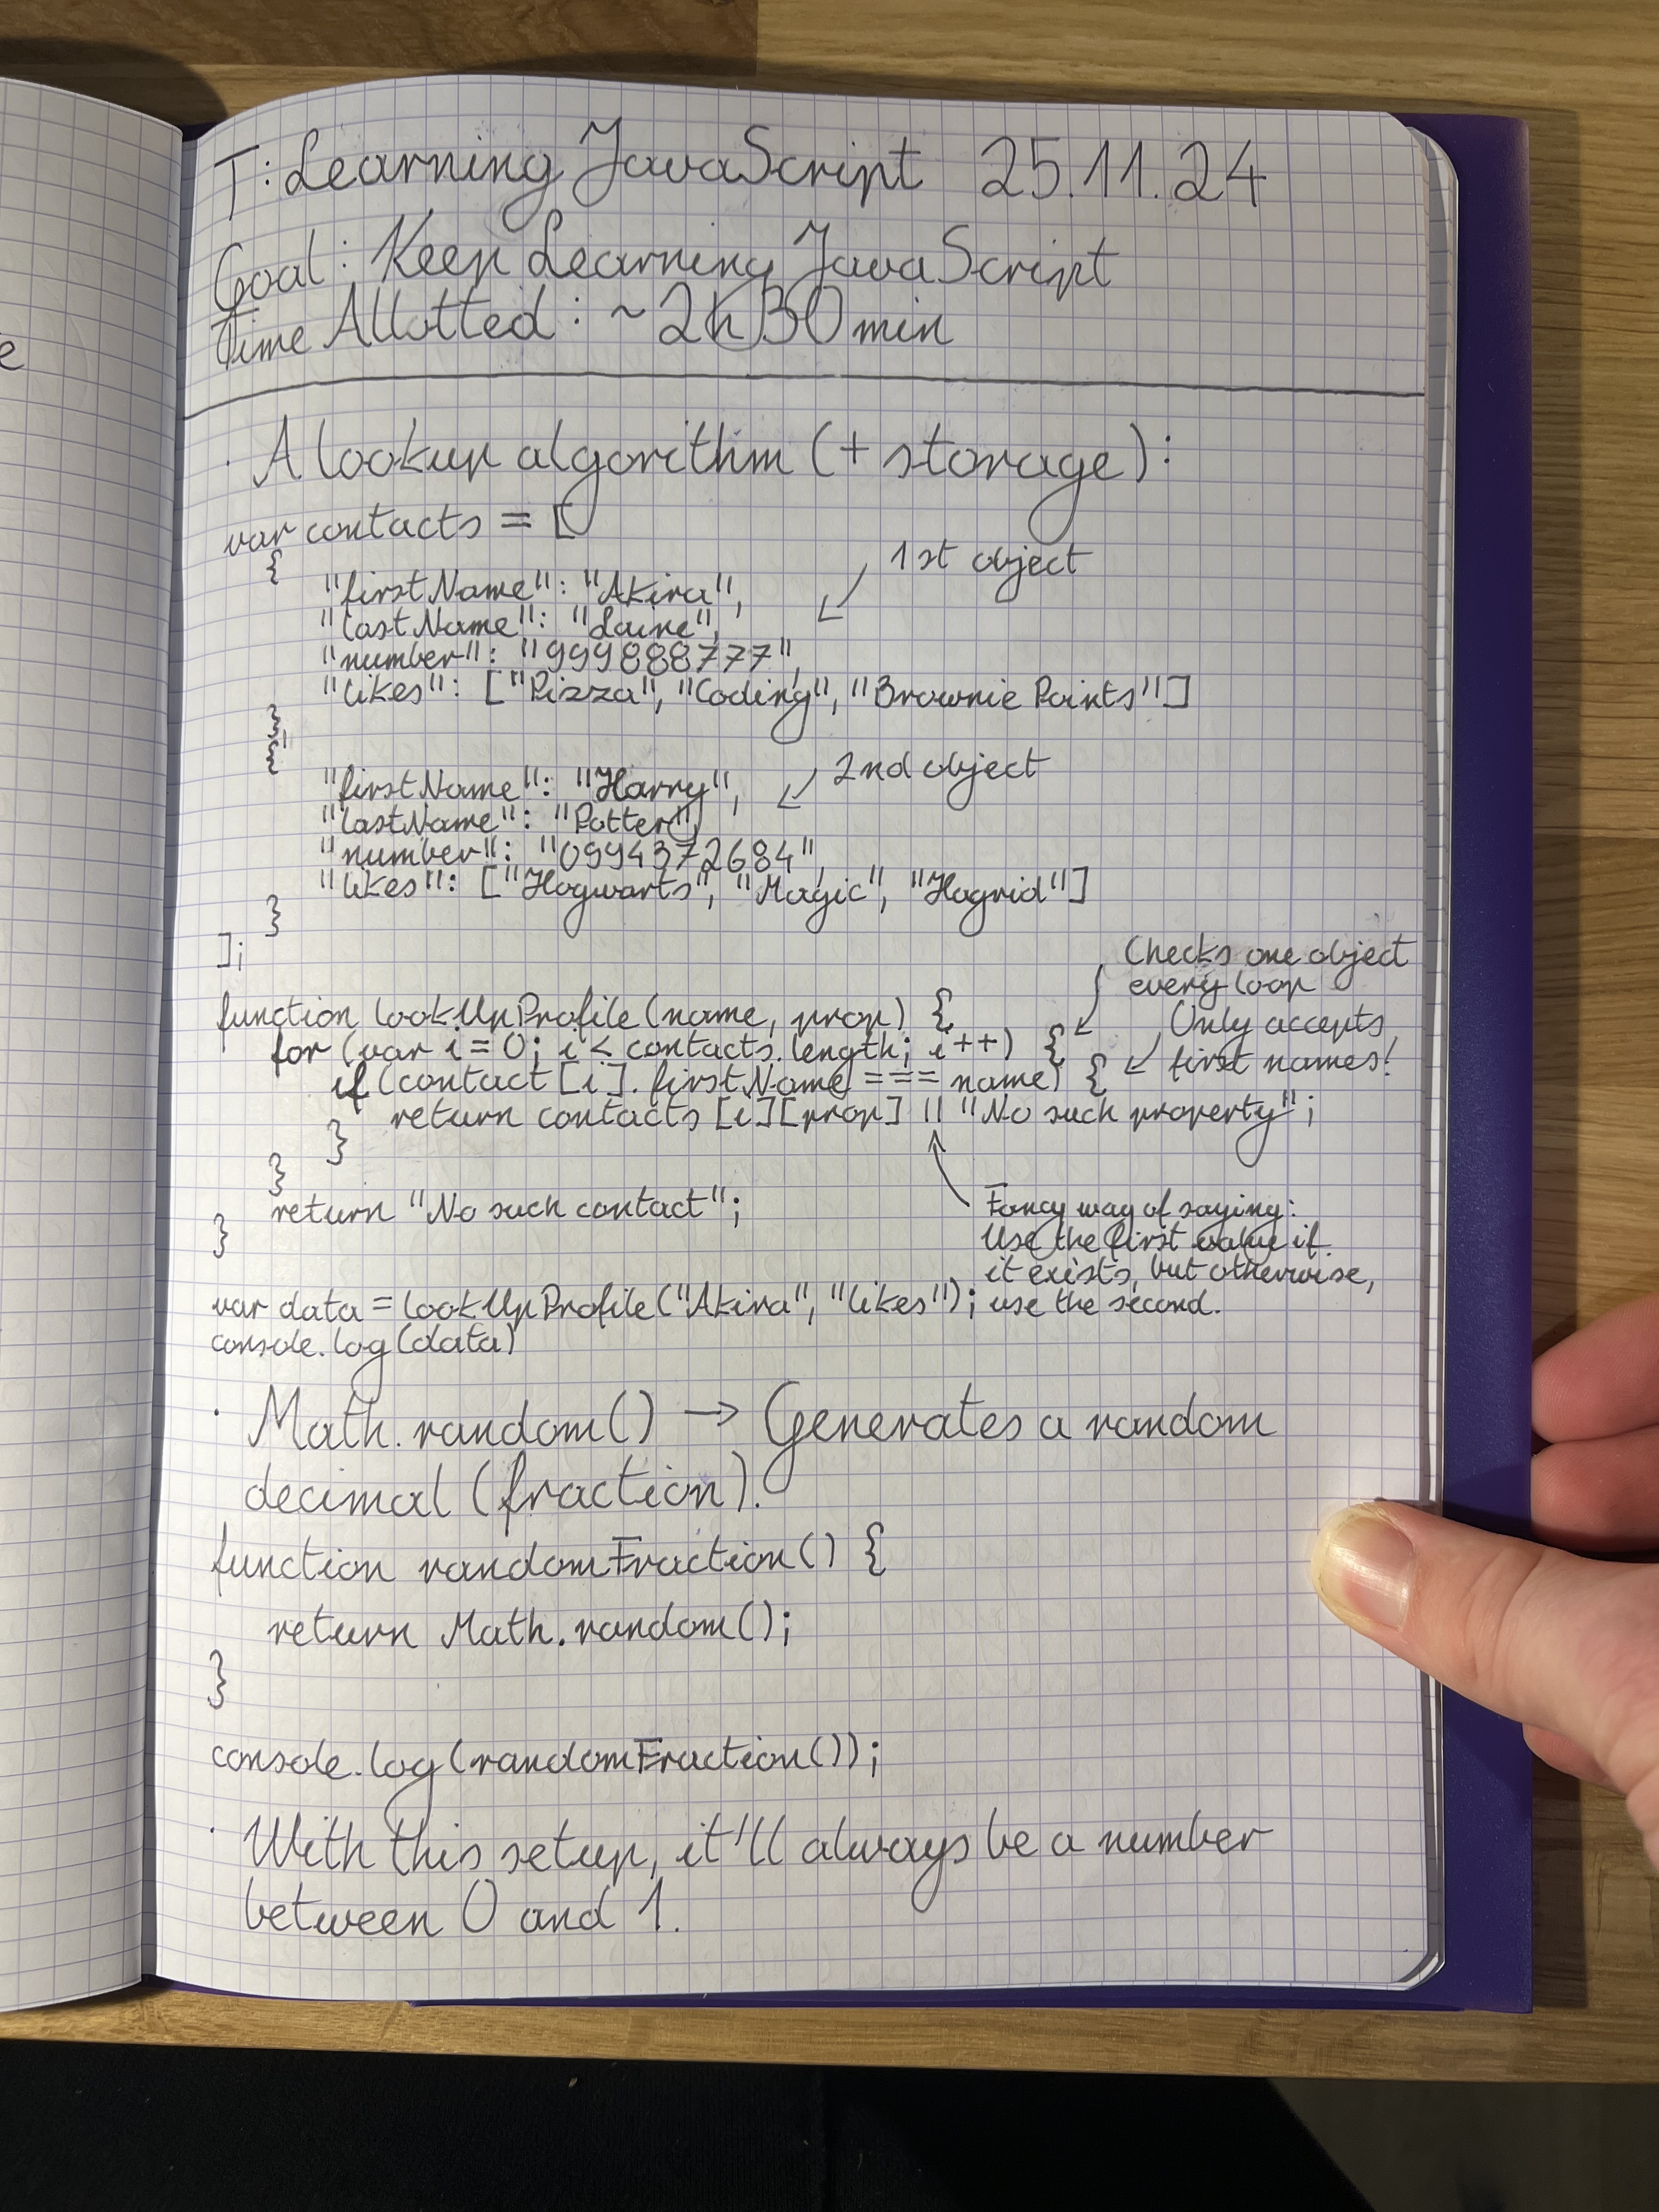 T: Learning JavaScript 25.11.24
Goal: Keep Learning JavaScript
Time Allotted: ~2h30min
· A lookup algorithm (+ storage):
var contacts = [
{
1st object
"firstName": "Akira",
"lastName": "Laine",
"number": "999888777",
"likes": ["Pizza", "Coding", "Brownie Points"]
},
{
2nd object
"firstName": "Harry",
"lastName": "Potter",
"number": "0994372684",
"likes": ["Hogwarts", "Magic", "Hagrid"]
}
];
Checks one object
every loop
function lookUpProfile(name, prop) {
Only accepts
first names!
for (var i = 0; i < contacts.length; i++) {
if (contact[i].firstName === name) {
return contacts[i][prop] || "No such property";
}
}
return "No such contact";
}
Fancy way of saying:
Use the first value if
it exists, but otherwise,
use the second.
var data = lookUpProfile("Akira", "likes");
console.log(data)
· Math.random() → Generates a random
decimal (fraction).
function randomFraction() {
return Math.random();
}
console.log(randomFraction());
· With this setup, it'll always be a number
between 0 and 1.
e